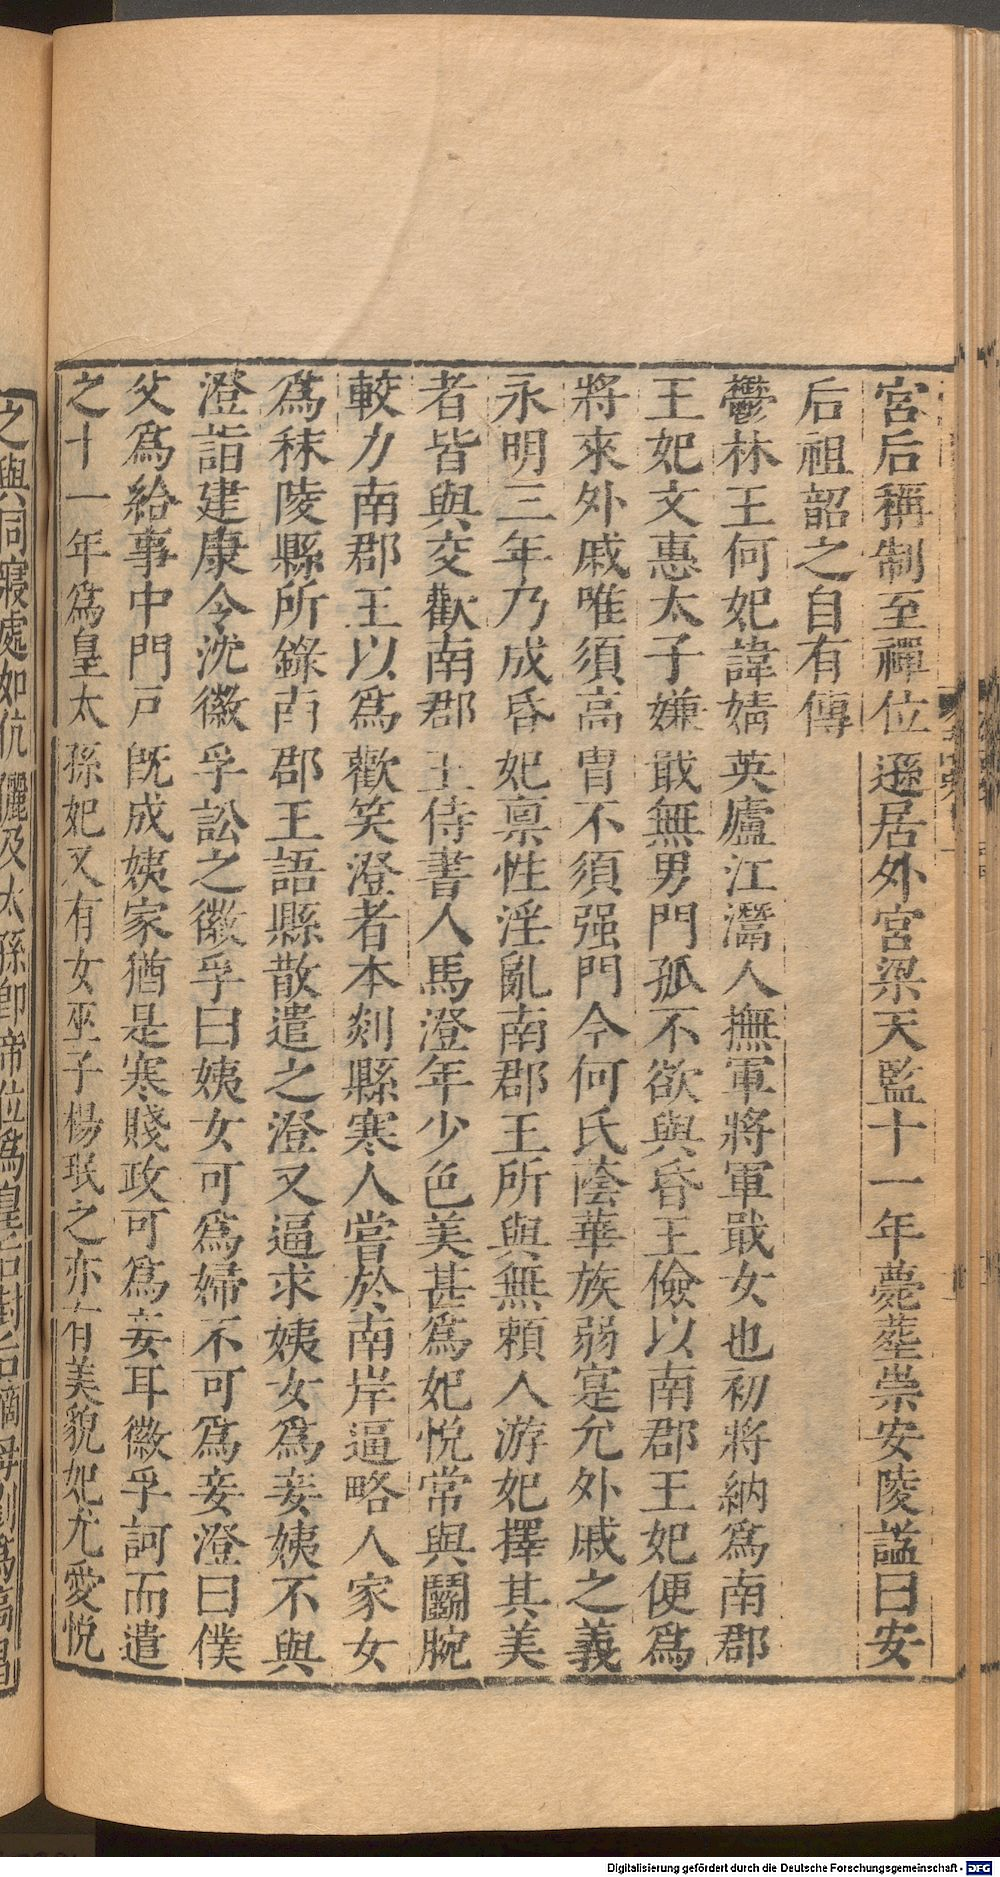 宮后稱制至禪位遜居外宮梁天監十一年薨葬崇安陵諡曰安
后祖韶之自有傳
鬱林王何妃諱婧英廬江灊人撫軍將軍戢女也初將納爲南郡
王妃文惠太子嫌戢無男門孤不欲與昏王儉以南郡王妃便爲
將來外戚唯須高胄不須强門今何氏蔭華族弱寔允外戚之義
永明三年乃成昏妃禀性淫亂南郡王所與無賴人游妃擇其美
者皆與交歡南郡王侍書人馬澄年少色美甚爲妃悅常與鬭腕
較力南郡王以爲歡笑澄者本剡縣寒人嘗於南岸逼略人家女
爲秣陵縣所錄南郡王語縣散遣之澄又逼求姨女爲妾姨不與
澄詣建康令沈徽孚訟之徽孚曰姨女可爲婦不可爲妾澄曰僕
父爲給事中門戸旣成姨家猶是寒賤政可爲妾耳徽孚訶而遣
之十一年爲皇太孫妃又有女巫子楊珉之亦有美貌妃尤愛悅
之與同寢處如伉儷及太孫卽帝位爲皇后封后嫡母劉爲高昌
Digitalisierung gefördert durch die Deutsche Forschungsgemeinschaft - DFG